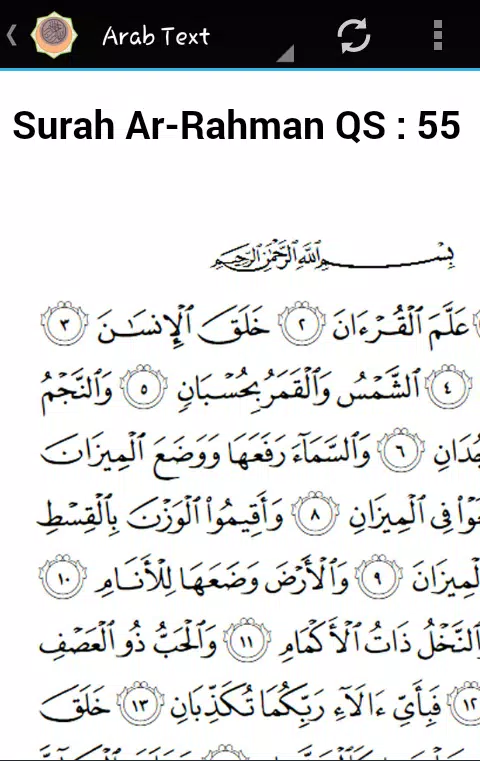 Arab Text
Surah Ar-Rahman QS : 55
بِسْمِ ٱللَّهِ ٱلرَّحْمَٰنِ ٱلرَّحِيمِ
عَلَّمَ ٱلْقُرْءَانَ ٢ خَلَقَ ٱلْإِنسَٰنَ ٣
٤ ٱلشَّمْسُ وَٱلْقَمَرُ بِحُسْبَانٍ ٥ وَٱلنَّجْمُ
٦ وَٱلسَّمَآءَ رَفَعَهَا وَوَضَعَ ٱلْمِيزَانَ
فِى ٱلْمِيزَانِ ٨ وَأَقِيمُوا۟ ٱلْوَزْنَ بِٱلْقِسْطِ
ٱلْمِيزَانَ ٩ وَٱلْأَرْضَ وَضَعَهَا لِلْأَنَامِ ١٠
ٱلنَّخْلُ ذَاتُ ٱلْأَكْمَامِ ١١ وَٱلْحَبُّ ذُو ٱلْعَصْفِ
١٢ فَبِأَىِّ ءَالَآءِ رَبِّكُمَا تُكَذِّبَانِ ١٣ خَلَقَ